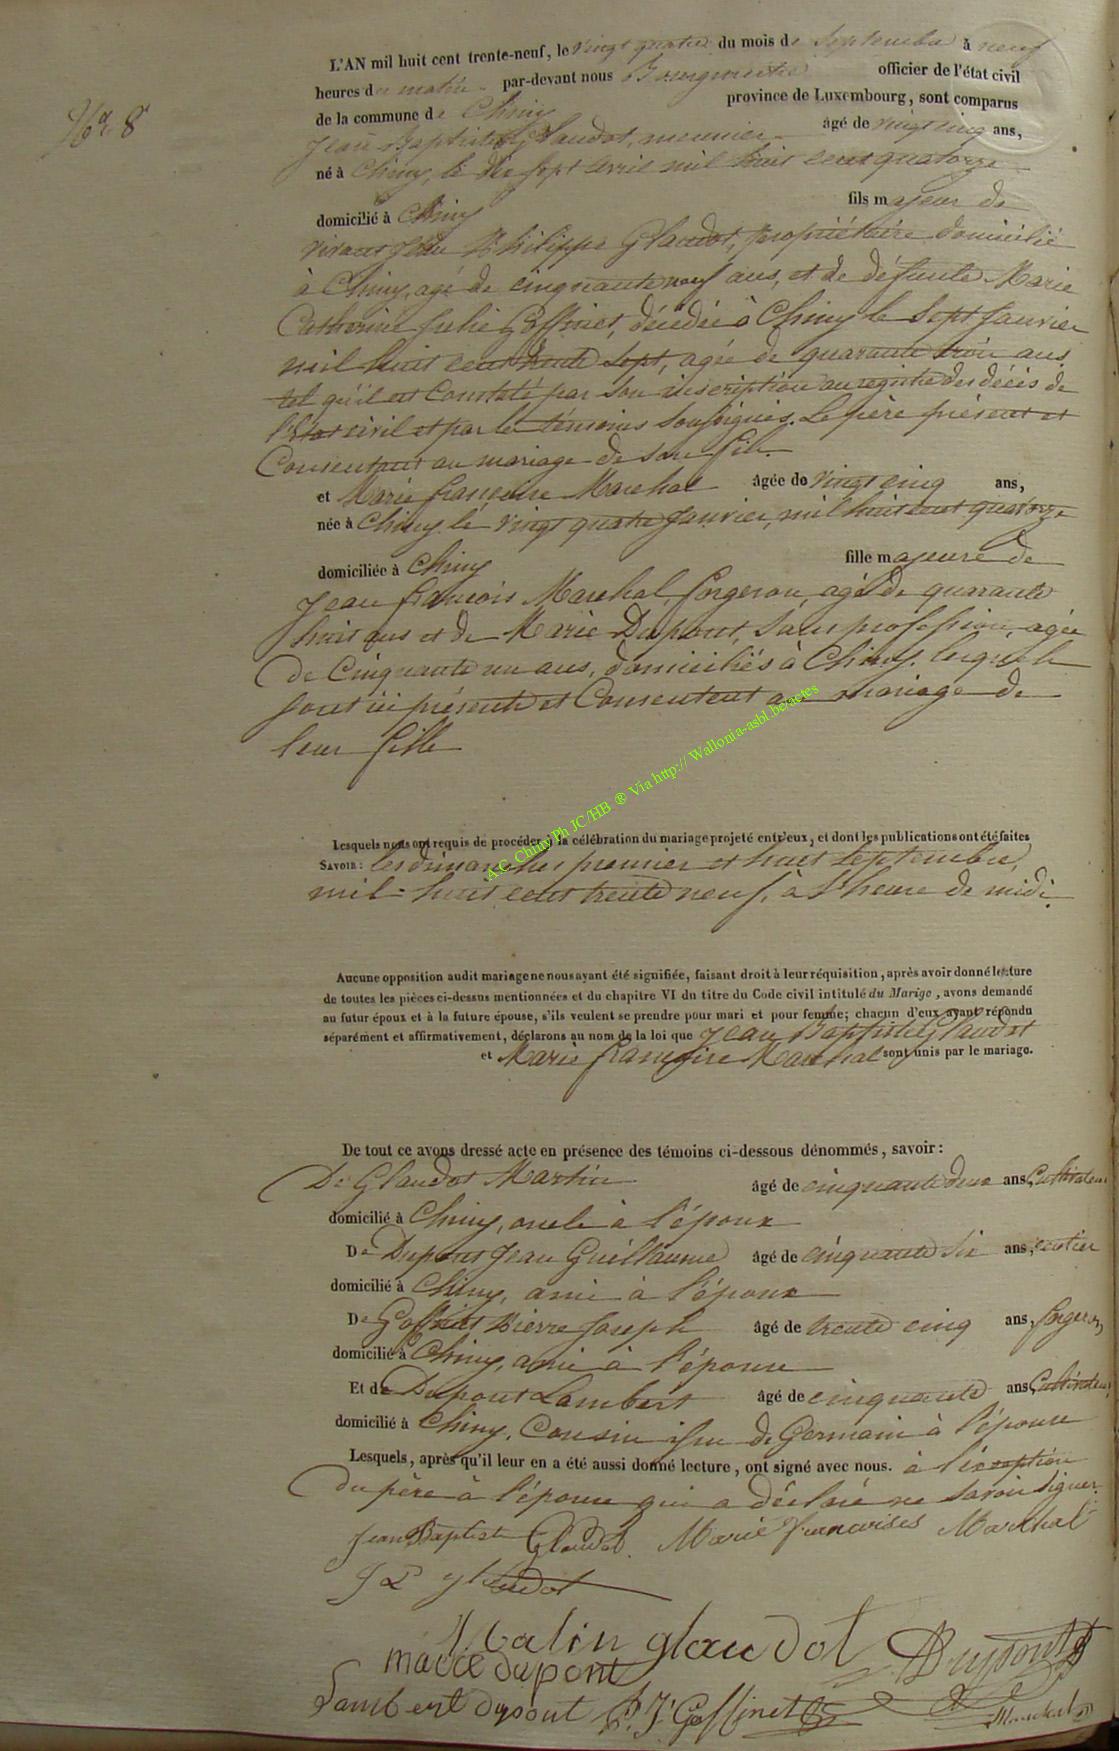 N° 8
L'AN mil huit cent trente-neuf, le vingt quatre du mois de Septembre à neuf
heures du matin par-devant nous Bourgmestre officier de l'état civil
de la commune de Chiny province de Luxembourg, sont comparus
Jean Baptiste Glaudot, meunier âgé de vingt cinq ans,
né à Chiny, le dix sept avril mil huit cent quatorze
domicilié à Chiny fils majeur de
vivant Jean Philippe Glaudot, propriétaire domicilié
à Chiny, agé de cinquante neuf ans, et de défunte Marie
Catherine Julie Goffinet, décédée à Chiny le Sept Janvier
mil huit cent trente Sept, agée de quarante trois ans
tel qu'il est Constaté par son inscription au registre des décès de
l'état civil et par les témoins Soussignés. Le père présent et
Consentant au mariage de son fils.
et Marie françoise Marchal âgée de vingt cinq ans,
née à Chiny le vingt quatre Janvier, mil huit cent quatorze
domiciliée à Chiny fille majeure de
Jean françois Marchal, forgeron, agé de quarante
huit ans et de Marie Dupont, Sans profession, agée
de Cinquante un ans, domiciliés à Chiny. lesquels
sont ici présents et Consentent au mariage de
leur fille
A.C. Chiny Ph JC/HB ® Via http:// Wallonia-asbl.be/actes
Lesquels nous ont requis de procéder à la célébration du mariage projeté entr'eux, et dont les publications ont été faites
SAVOIR : les dimanches premier et huit Septembre,
mil huit cent trente neuf, à l'heure de midi.
Aucune opposition audit mariage ne nous ayant été signifiée, faisant droit à leur réquisition, après avoir donné lecture
de toutes les pièces ci-dessus mentionnées et du chapitre VI du titre du Code civil intitulé du Marige, avons demandé
au futur époux et à la future épouse, s'ils veulent se prendre pour mari et pour femme; chacun d'eux ayant répondu
séparément et affirmativement, déclarons au nom de la loi que Jean Baptiste Glaudot
et Marie françoise Marchal sont unis par le mariage.
De tout ce avons dressé acte en présence des témoins ci-dessous dénommés, savoir :
De Glaudot Martin âgé de cinquante deux ans, Cultivateur
domicilié à Chiny, oncle à l'époux
De Dupont Jean Guillaume âgé de cinquante six ans, rentier
domicilié à Chiny, ami à l'époux
De Goffinet Pierre Joseph âgé de trente cinq ans, forgeron
domicilié à Chiny, ami à l'épouse
Et de Dupont Lambert âgé de cinquante ans, Cultivateur
domicilié à Chiny, Cousin issu de Germain à l'épouse
Lesquels, après qu'il leur en a été aussi donné lecture, ont signé avec nous. à l'exception
du père à l'épouse qui a déclaré ne savoir signer.
Jean Baptist Glaudot. Marie francoises Marchal
J P glaudot
Matin glaudot Dupont
marie dupont
Lambert dupont P. J. Goffinet Marchal